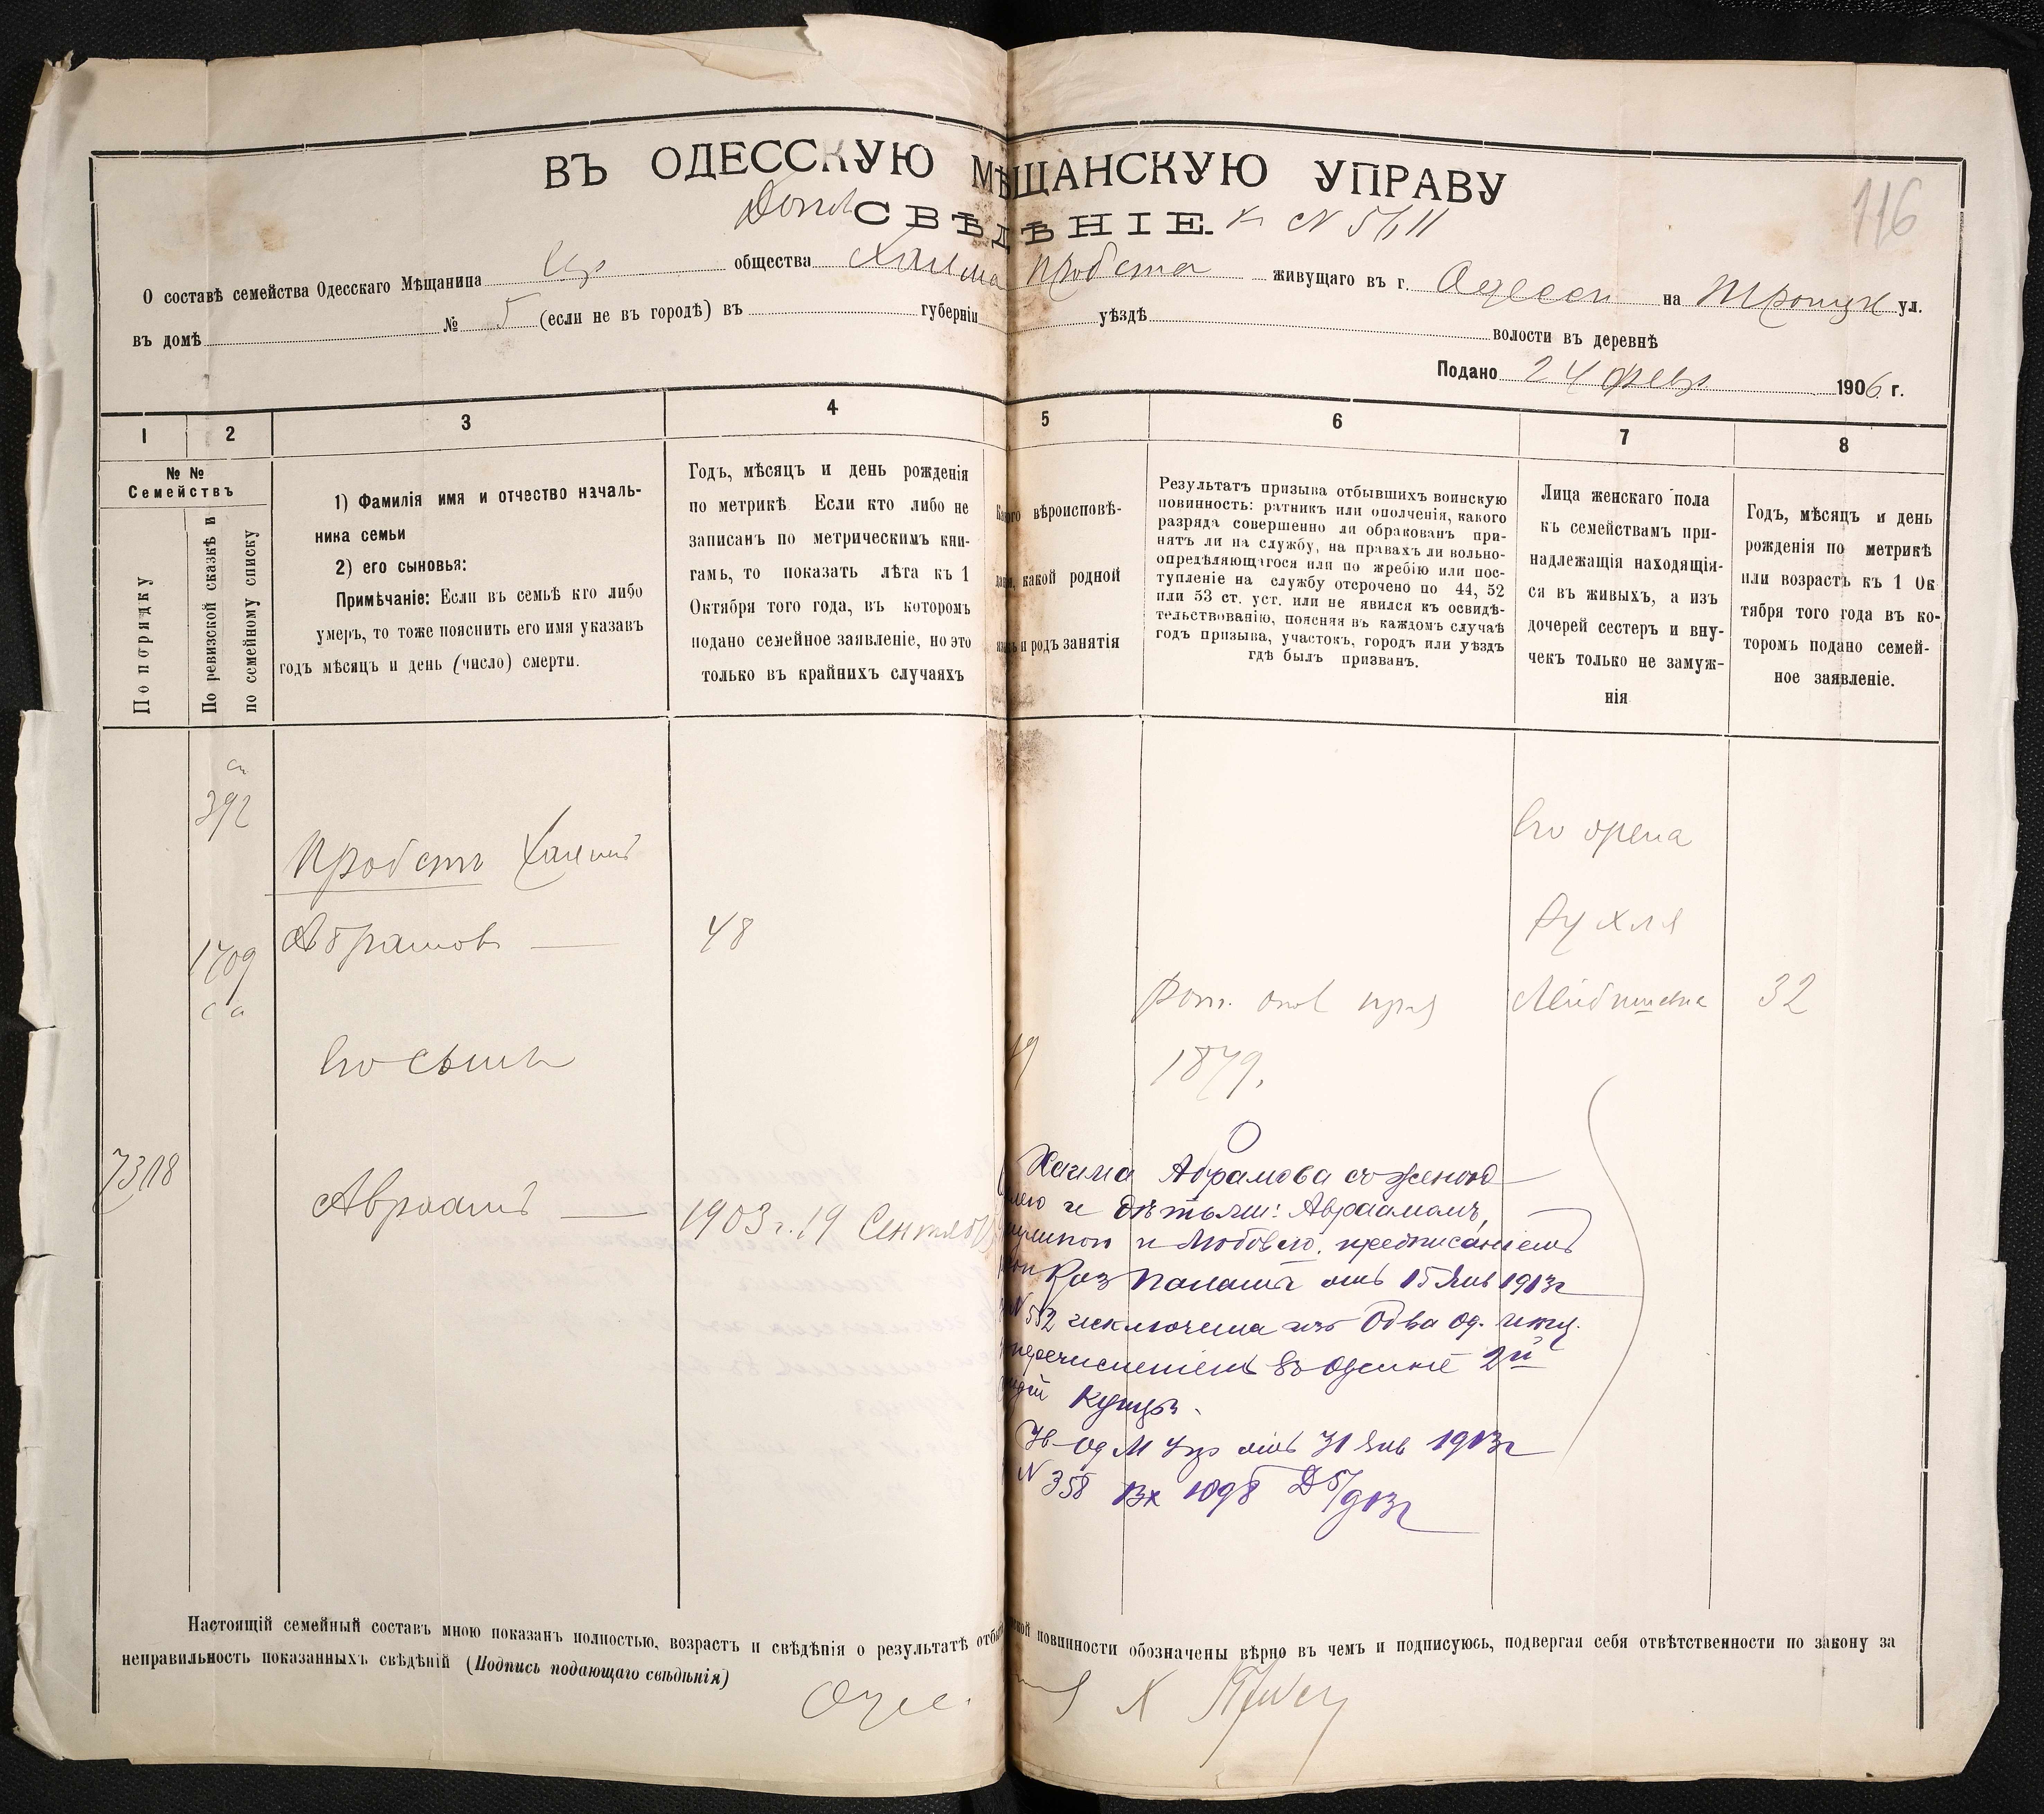 ВЪ ОДЕССКУЮ МѢЩАНСКУЮ УПРАВУ
116
СВѢДѢНІЕ. к N 5/111
О составѣ семейства Одесскаго Мѣщанина Евр общества Хаима Пробста живущаго въ г. Одессѣ на Троицк ул.
въ домѣ № 5 (если не въ городѣ) въ губерніи уѣздѣ волости въ деревнѣ
Подано 24 февр 1906 г.
1 2 3 4 5 6 7 8
№ №
Семействъ
По порядку
По ревизской сказкѣ и
по семейному списку
1) Фамилія имя и отчество началь-
ника семьи
2) его сыновья:
Примѣчаніе: Если въ семьѣ кто либо
умеръ, то тоже пояснить его имя указавъ
годъ мѣсяцъ и день (число) смерти.
Годъ, мѣсяцъ и день рожденія
по метрикѣ Если кто либо не
записанъ по метрическимъ кни-
гамъ, то показать лѣта къ 1
Октября того года, въ которомъ
подано семейное заявленіе, но это
только въ крайнихъ случаяхъ
Какого вѣроисповѣ-
данія, какой родной
языкъ и родъ занятія
Результатъ призыва отбывшихъ воинскую
повинность: ратникъ или ополченія, какого
разряда совершенно ли обракованъ при-
нятъ ли на службу, на правахъ ли вольно-
опредѣляющагося или по жребію или пос-
тупленіе на службу отсрочено по 44, 52
или 53 ст. уст. или не явился къ освидѣ-
тельствованію, поясняя въ каждомъ случаѣ
годъ призыва, участокъ, городъ или уѣздъ
гдѣ былъ призванъ.
Лица женскаго пола
къ семействамъ при-
надлежащія находящія-
ся въ живыхъ, а изъ
дочерей сестеръ и вну-
чекъ только не замуж-
нія
Годъ, мѣсяцъ и день
рожденія по метрикѣ
или возрастъ къ 1 Ок
тября того года въ ко-
торомъ подано семей-
ное заявленіе.
392
Пробстъ Хаимъ
Его жена
1709
Абрамовъ —
48
Рухля
са
Рат. опол приз
Лейбишевна
32
Его сынъ
1879.
7318
Авраамъ — 1903 г. 19 Сентяб
Хаима Абрамова съ женою
и дѣтьми: Авраамомъ,
и Любовью, предписаніемъ
Каз Палаты отъ 15 Янв 1913г
N 552 исключена изъ Общва Од. мѣщ.
перечисленіемъ въ Одесскіе 2й
Купцы.
Ув Од М Упр отъ 31 Янв 1913г
N 358 Вх 1098 Д 5/913г
Настоящій семейный составъ мною показанъ полностью, возрастъ и свѣдѣнія о результатѣ отбы ской повинности обозначены вѣрно въ чемъ и подписуюсь, подвергая себя отвѣтственности по закону за
неправильность показанныхъ свѣдѣній (Подпись подающаго свѣдѣнія)